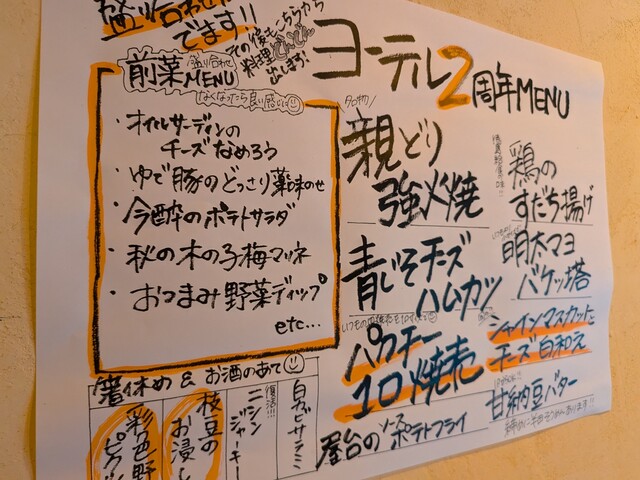 盛り合わせ
でます!!
その後もこちらから
料理どんどん
出します!
ヨーテル2周年MENU
前菜MENU
盛り合わせ
なくなったら良い感じに
・オイルサーディンの
チーズなめろう
・ゆで豚のどっさり薬味のせ
・今酔のポテトサラダ
・秋の木の子梅マリネ
・おつまみ野菜ディップ
etc...
親どり
強火焼
鶏の
すだち揚げ
青じそチーズ
ハムカツ
明太マヨ
バケッ塔
パクチー
10焼売
シャインマスカットと
チーズ白和え
屋台のソースポテトフライ
甘納豆バター
箸休め & お酒のあて
白カビサラミ
復活!!!
ニシン
ジャーキー
枝豆の
お浸し
彩色野
ピク